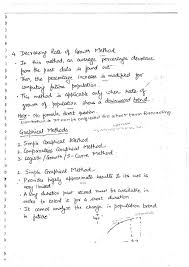 4. Decreasing Rate of Growth Method
- In this method, an average percentage decrease
from the past data is found out.
- Then the percentage increase is modified for
computing future population
- This method is applicable only when rate of
growth of population shows a downward trend.
Graphical Methods
1. Simple Graphical Method
2. Comparative Graphical Method
3. Logistic / Growth / S-Curve Method
1. Simple Graphical Method
- Provides highly approximate results & its use is
very limited
- A long duration past record must be available in
order to extend it for a short duration.
- It cannot analyse the change in population trend
in future